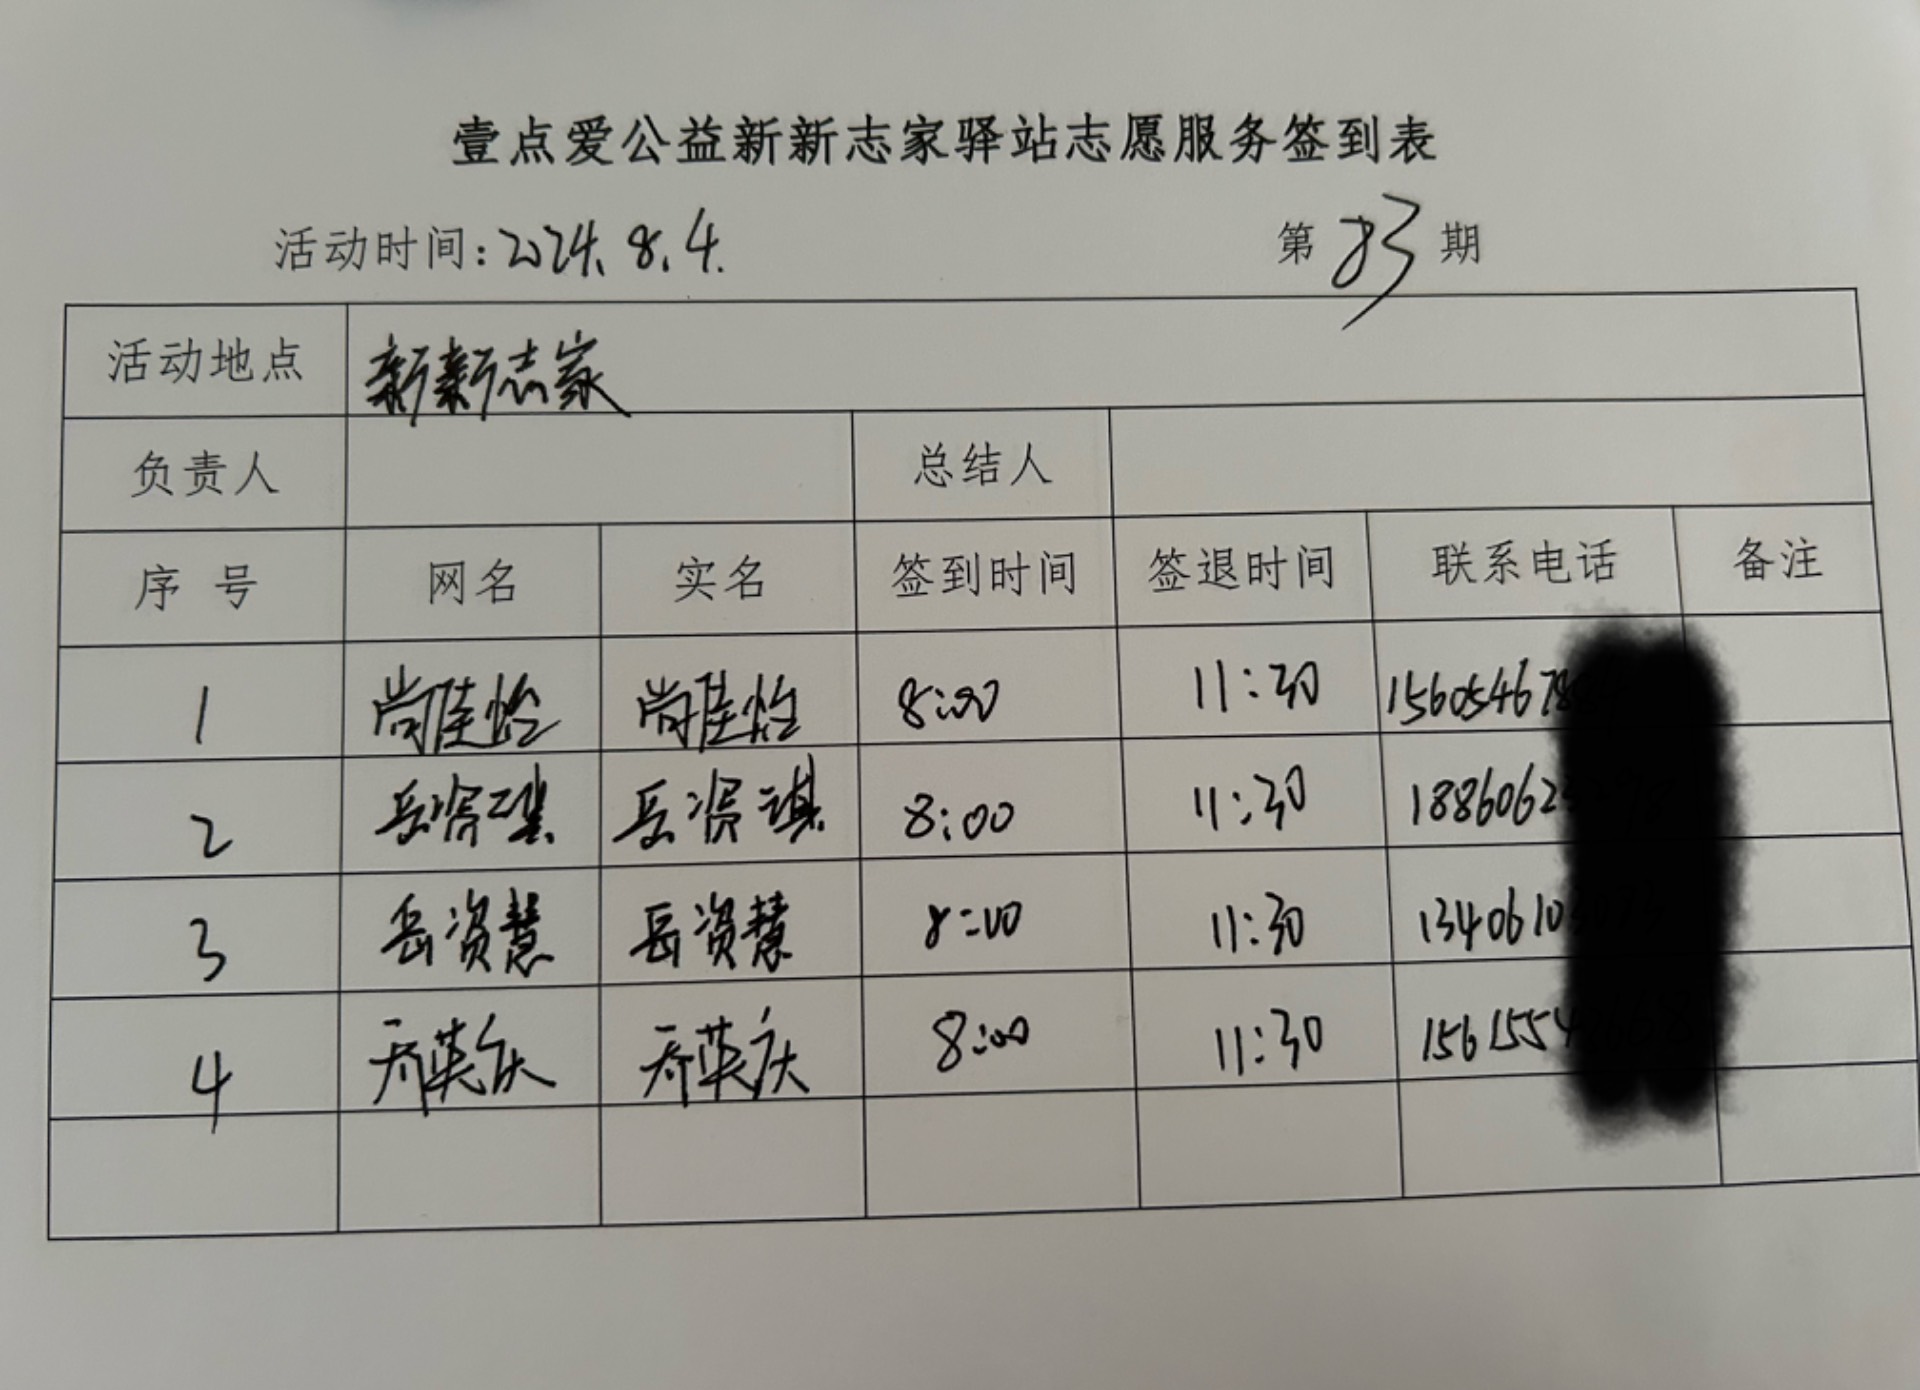 壹点爱公益新新志家驿站志愿服务签到表
活动时间:2024.8.4. 第83期
活动地点 新新志家
负责人 总结人
序号 网名 实名 签到时间 签退时间 联系电话 备注
1 尚佳怡 尚佳怡 8:00 11:30 15605467
2 岳资琪 岳资琪 8:00 11:30 1886062
3 岳资慧 岳资慧 8:00 11:30 1340610
4 乔英庆 乔英庆 8:00 11:30 1561554